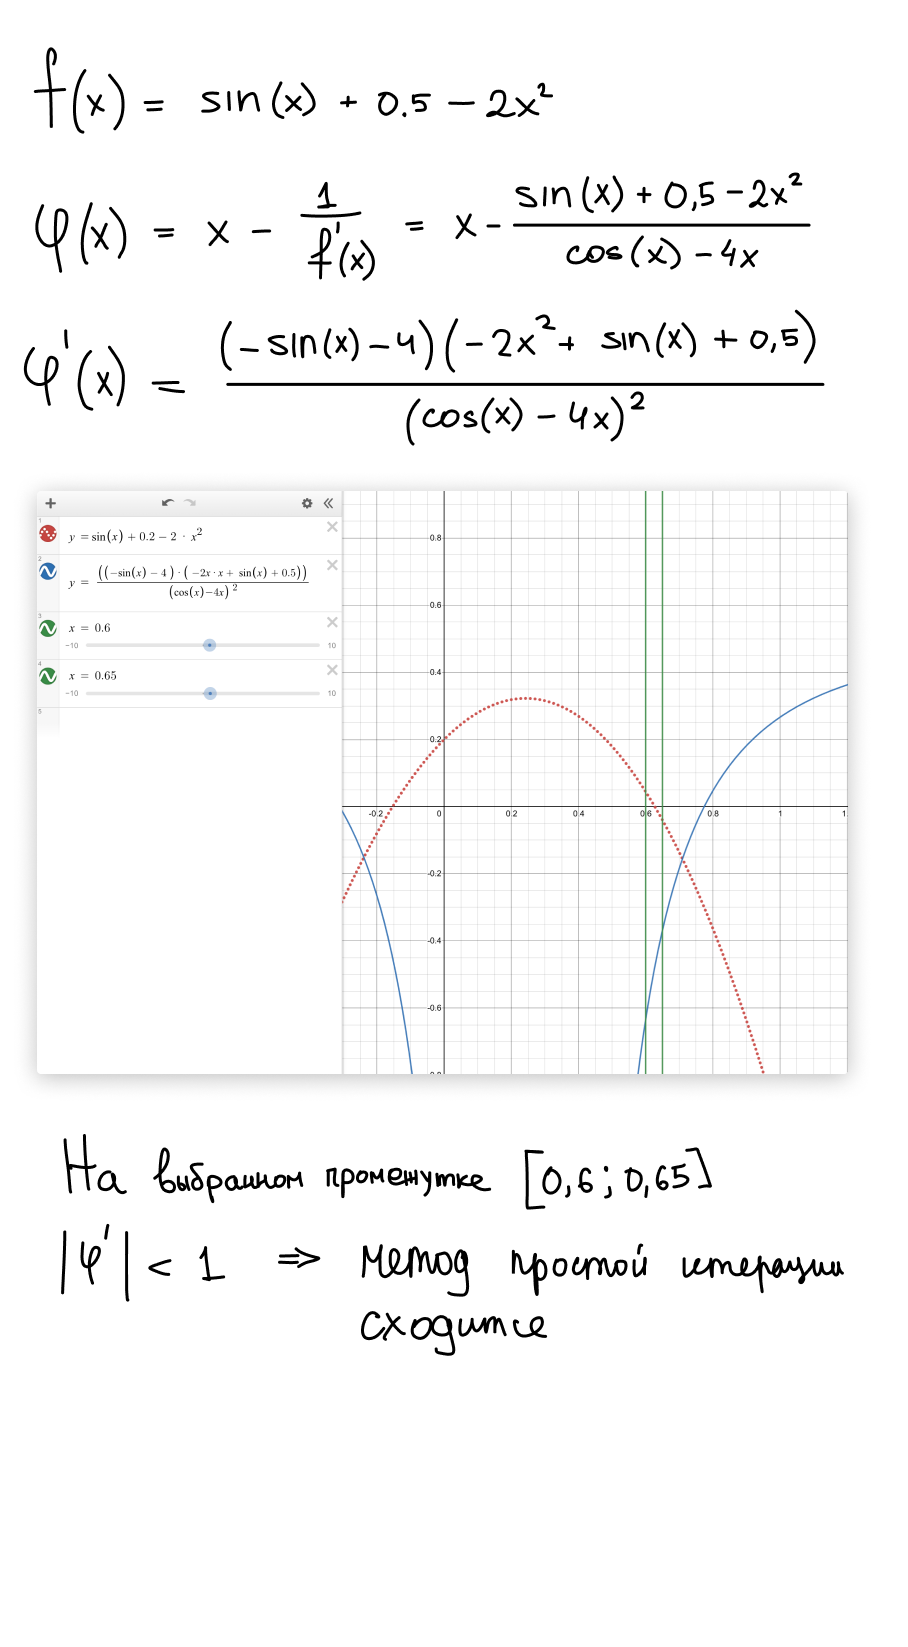 f(x) = sin(x) + 0.5 − 2x²
φ(x) = x − 1/f'(x) = x − (sin(x) + 0,5 − 2x²)/(cos(x) − 4x)
φ'(x) = (−sin(x) − 4)(−2x² + sin(x) + 0,5)/(cos(x) − 4x)²
+ «
1 y = sin(x) + 0.2 − 2 · x²
2 y = ((−sin(x) − 4) · (−2x · x + sin(x) + 0.5))/(cos(x) − 4x)²
3 x = 0.6
−10 10
4 x = 0.65
−10 10
5
0.8
0.6
0.4
0.2
-0.2 0 0.2 0.4 0.6 0.8 1 1.
-0.2
-0.4
-0.6
На выбранном промежутке [0,6; 0,65]
|φ'| < 1 ⇒ метод простой итерации
сходится